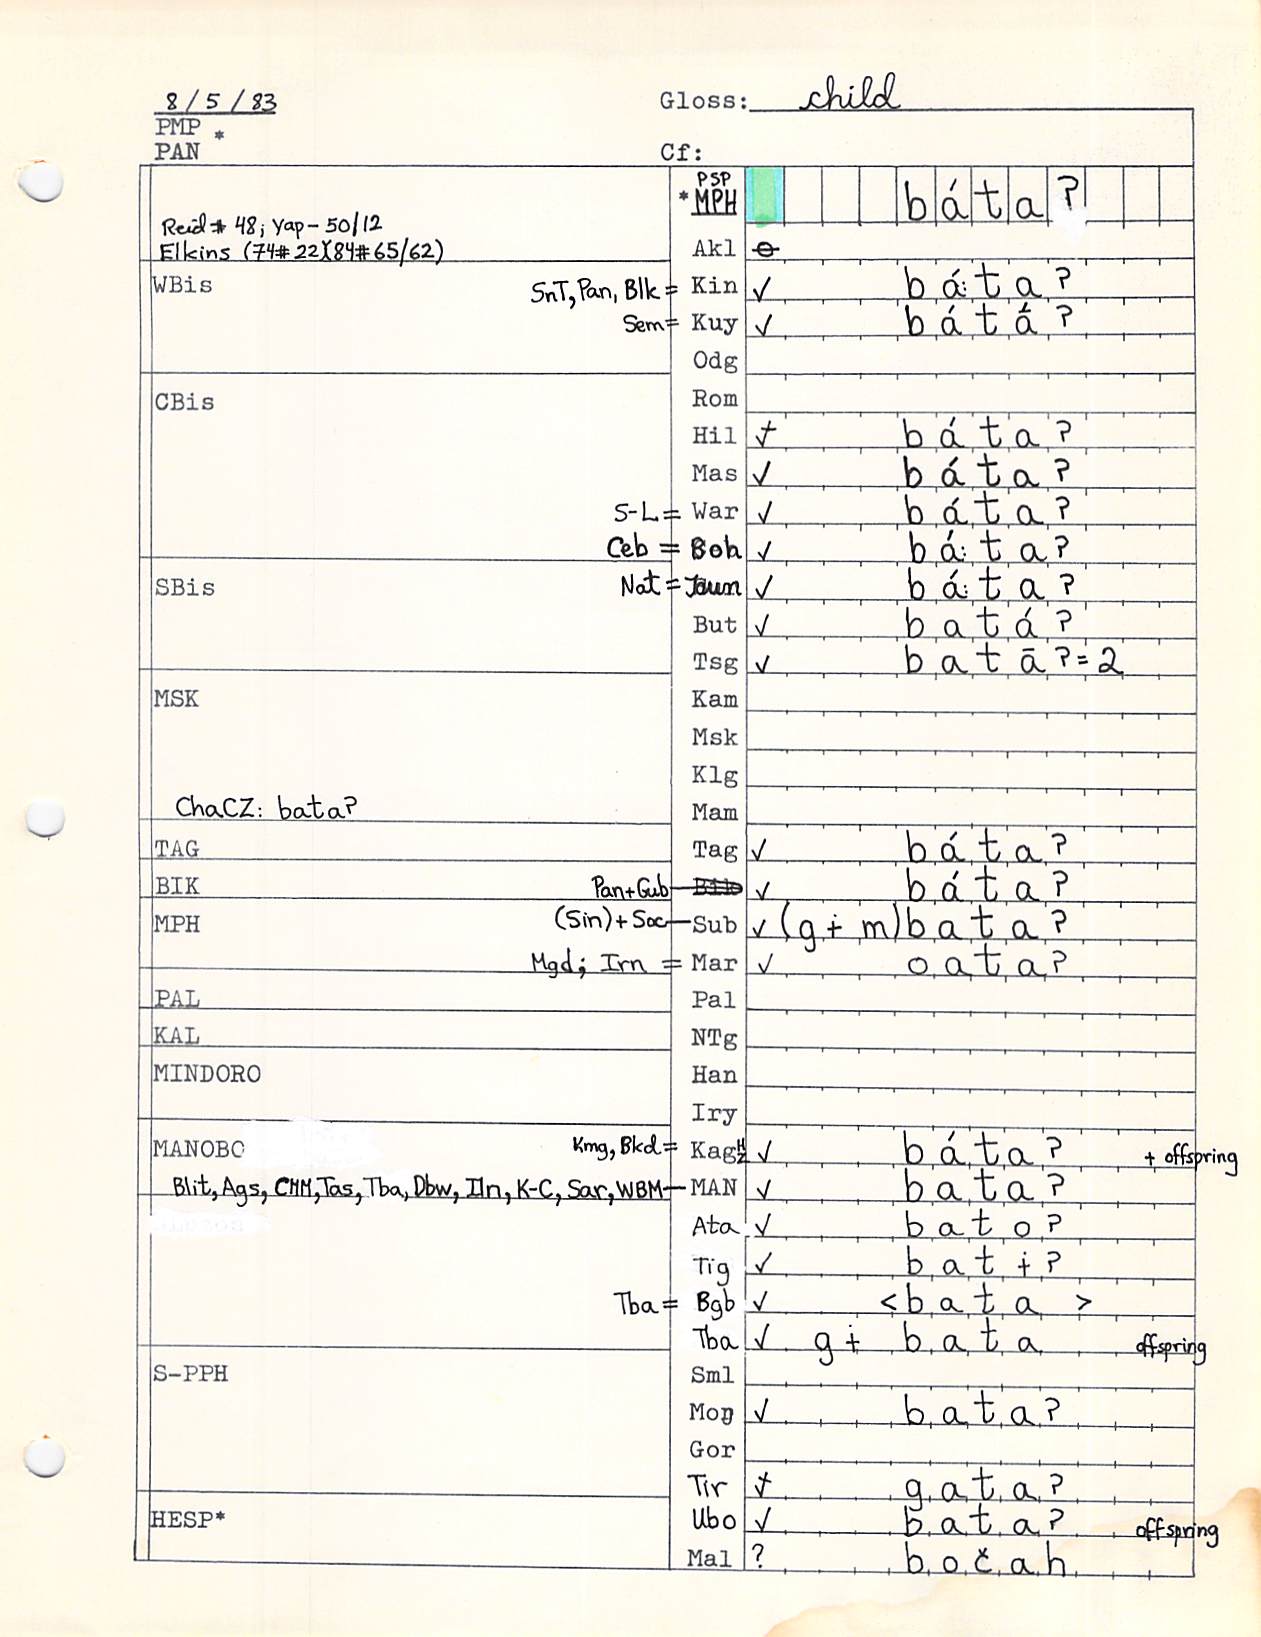 8/5/83 Gloss: child
PMP *
PAN Cf:
PSP
*MPH báta?
Reid # 48; Yap-50/12
Elkins (74#22)(84#65/62) Akl ⊖
WBis SnT, Pan, Blk = Kin ✓ bá:ta?
Sem = Kuy ✓ bátá?
Odg
CBis Rom
Hil ✓ báta?
Mas ✓ báta?
S-L = War ✓ báta?
Ceb = Boh ✓ bá:ta?
SBis Nat = Jaun ✓ bá:ta?
But ✓ batá?
Tsg ✓ batā? = 2
MSK Kam
Msk
Klg
ChaCZ: bata? Mam
TAG Tag ✓ báta?
BIK Pan+Gub ✓ báta?
MPH (Sin)+Soc—Sub ✓ (gɨm)bata?
Mgd; Irn = Mar ✓ oata?
PAL Pal
KAL NTg
MINDORO Han
Iry
MANOBO Kmg, Bkd = Kag ✓ báta? + offspring
Blit, Ags, CMM, Tas, Tba, Dbw, Iln, K-C, Sar, WBM—MAN ✓ bata?
Ata ✓ bato?
Tig ✓ batɨ?
Tba = Bgb ✓ <bata >
Tba ✓ gɨ bata offspring
S-PPH Sml
Moŋ ✓ bata?
Gor
Tir ✓ gata?
HESP* Ubo ✓ bata? offspring
Mal ? bočah